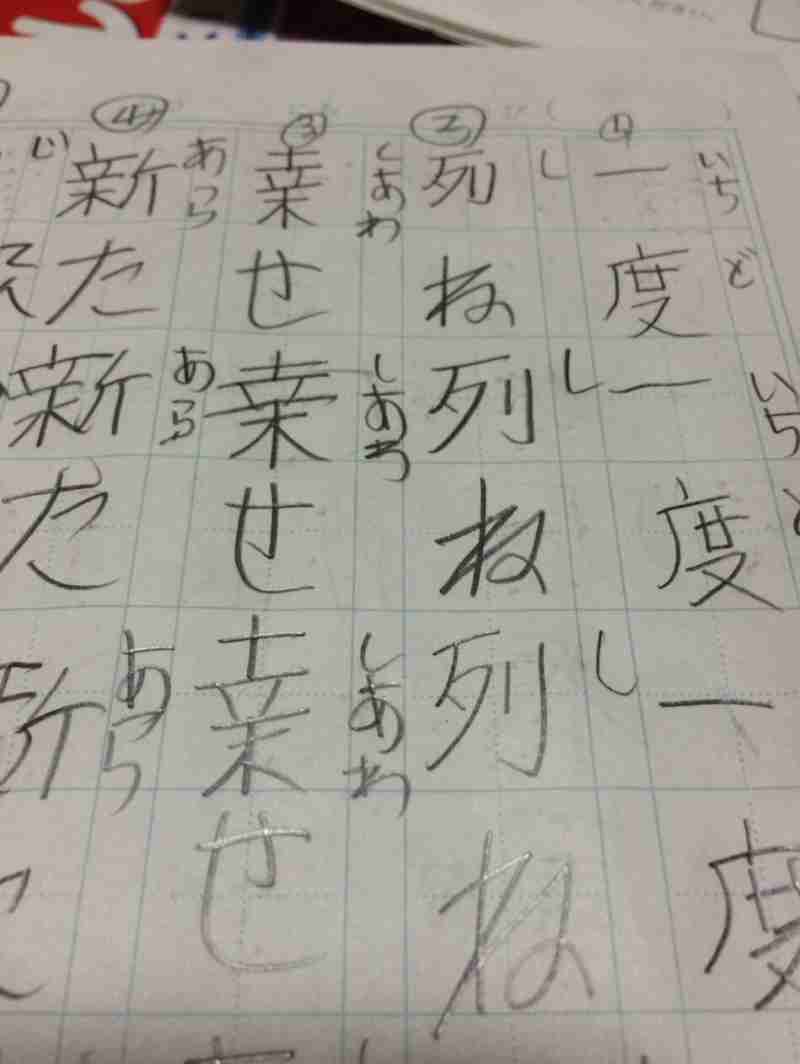 いちど いち
① 一度一度一度
し し し
② 列ね列ね列ね
しあわ しあわ しあわ
③ 幸せ幸せ幸せ
あら あら あら
④ 新た新た
じ